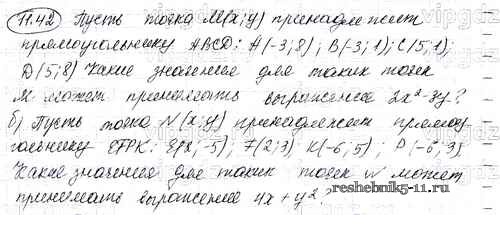 11.42) Пусть точка M(x;y) принадлежит
прямоугольнику ABCD: A(-3;8); B(-3;1); C(5;1);
D(5;8) Какие значения для таких точек
M может принимать выражение 2x²-3y?
б) Пусть точка N(x;y) принадлежит прямоу
гольнику EFPK: E(2;-5); F(2;3) K(-6;5); P(-6;3)
Какие значения для таких точек N может
принимать выражение 4x+y²?
reshebnik5-11.ru
vipgdz